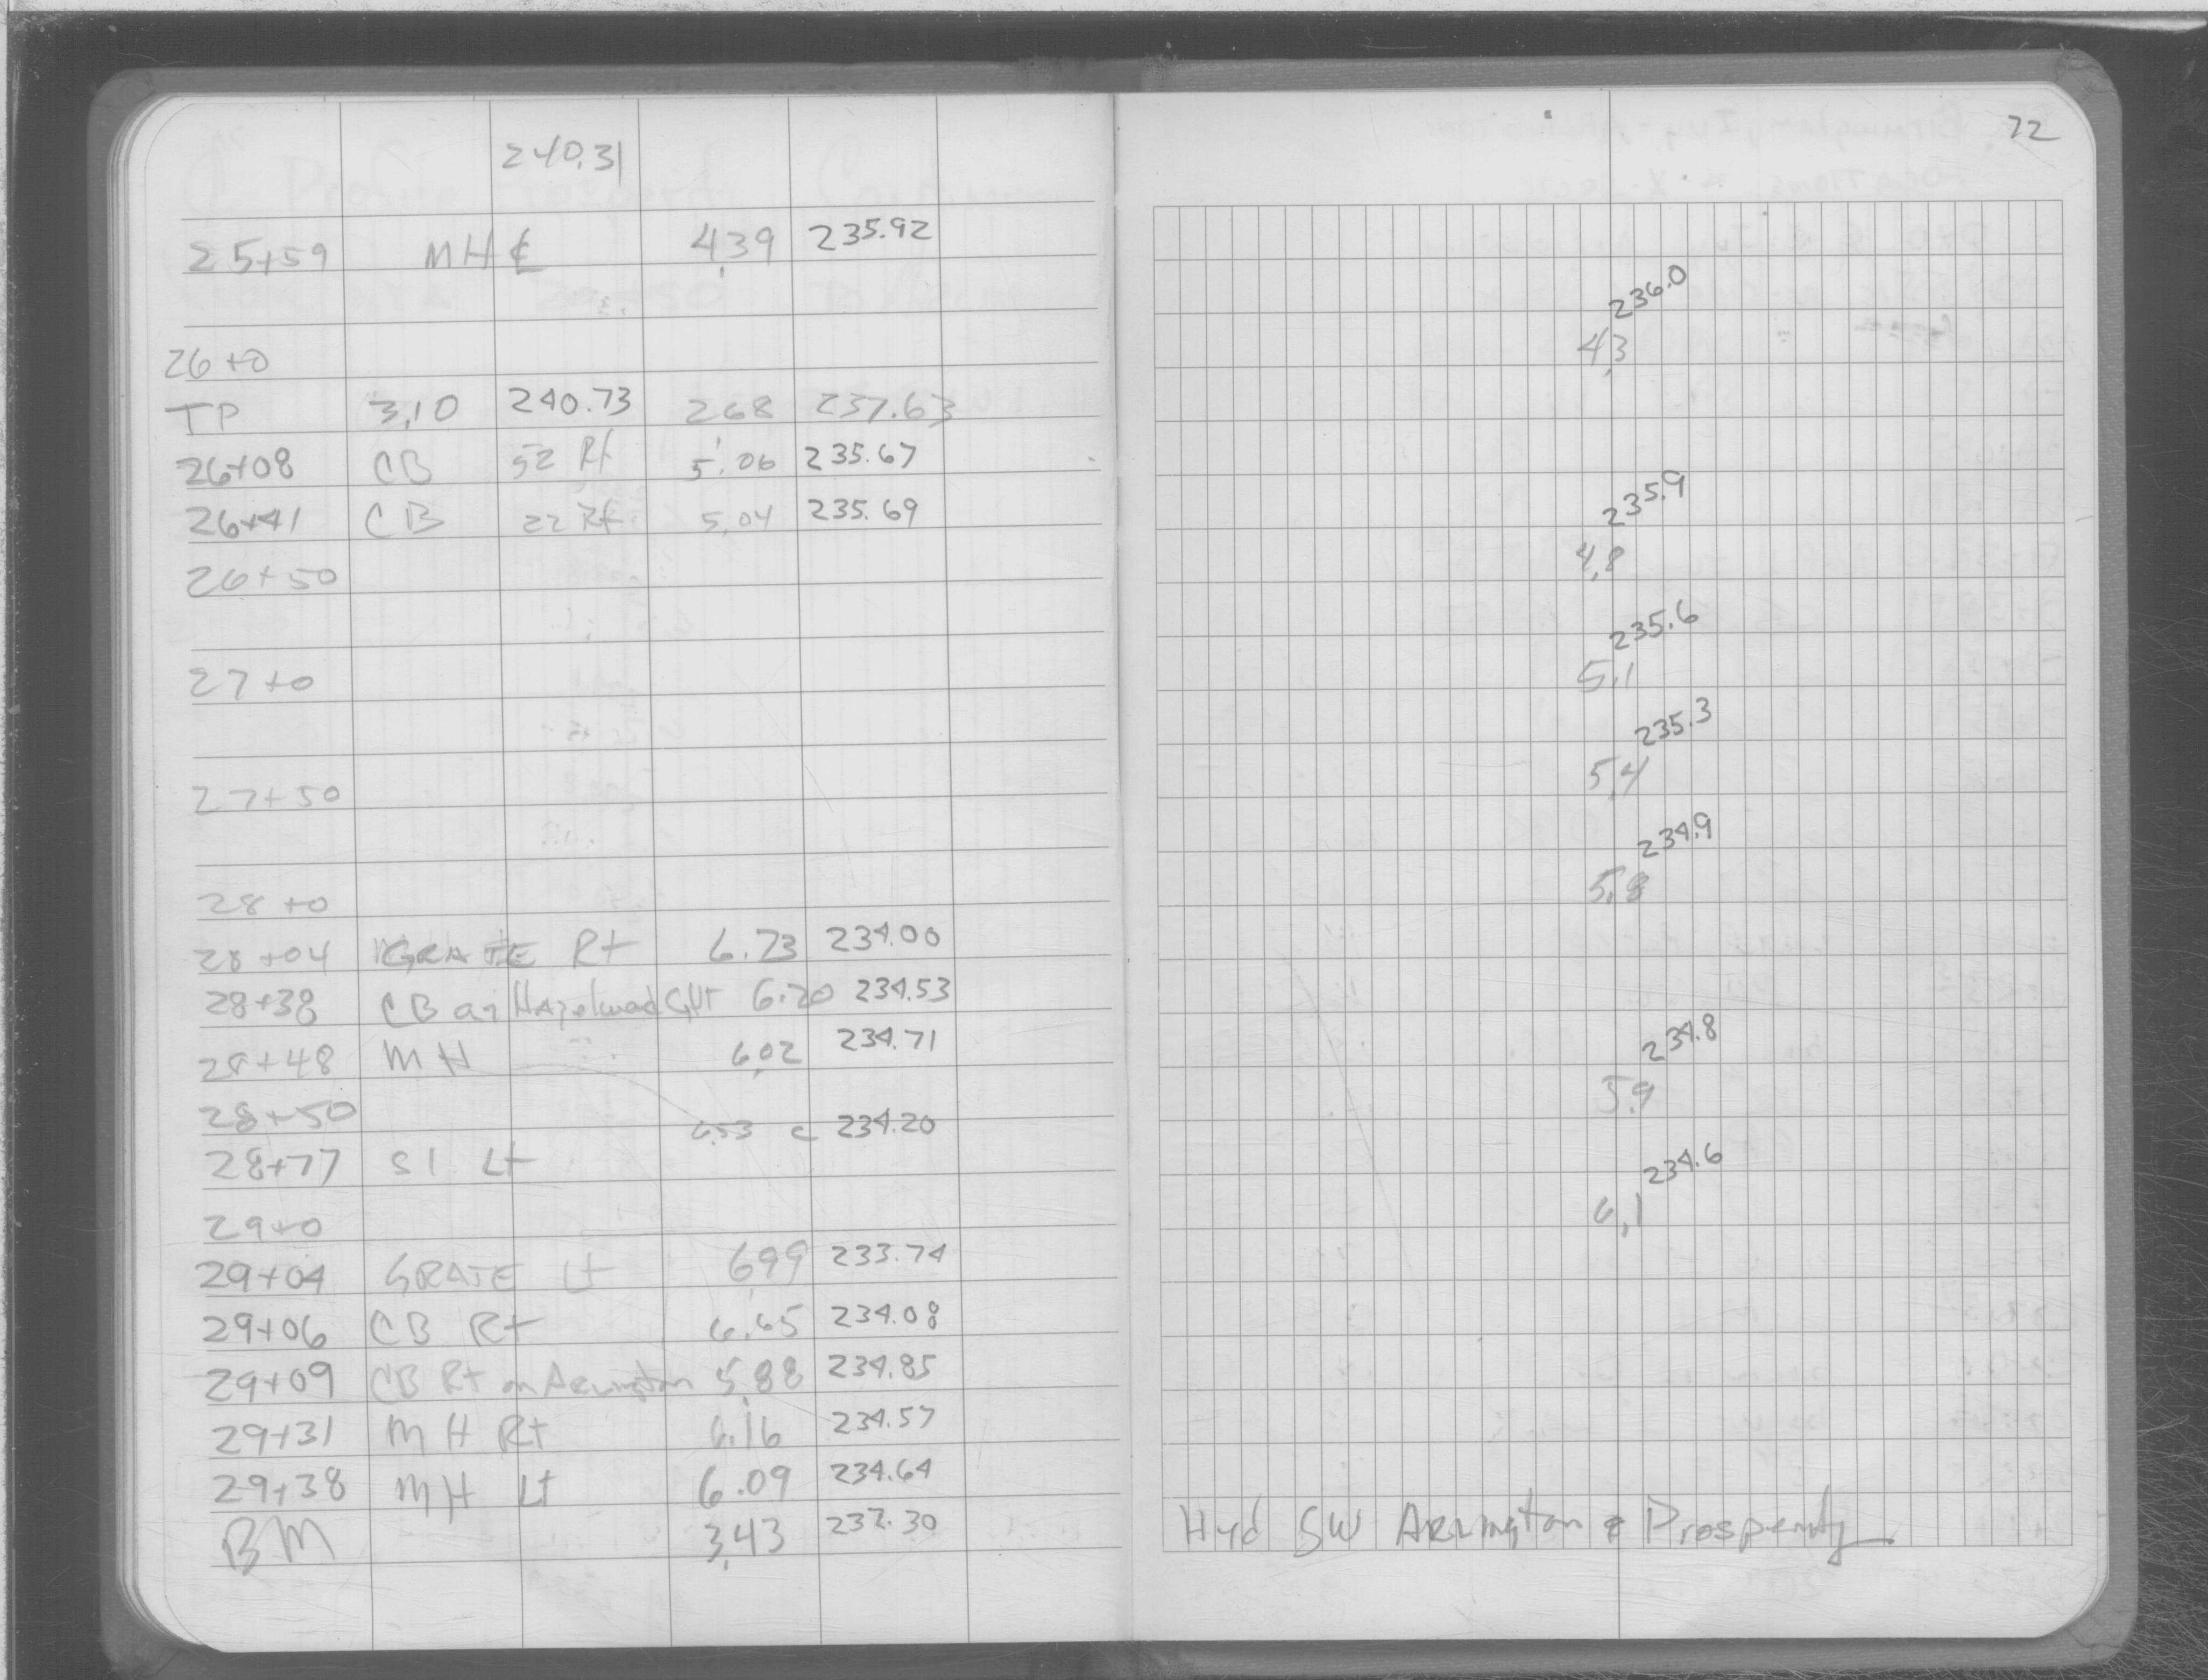 240.31
25+59 MH ℄ 4.39 235.92
26+0
TP 3.10 240.73 2.68 237.63
26+08 CB 52 Rt 5.06 235.67
26+41 CB 22 Rt 5.04 235.69
26+50
27+0
27+50
28+0
28+04 GRATE Rt 6.73 234.00
28+38 CB at Hazelwood 6.20 234.53
28+48 MH 6.02 234.71
28+50
6.53 c 234.20
28+77 SI Lt
29+0
29+04 GRATE Lt 6.99 233.74
29+06 CB Rt 6.65 234.08
29+09 CB Rt on Arrington 5.88 234.85
29+31 MH Rt 6.16 234.57
29+38 MH Lt 6.09 234.64
BM 3.43 237.30
72
236.0
4.3
235.9
4.8
235.6
5.1
235.3
5.4
234.9
5.8
234.8
5.9
234.6
6.1
Hyd SW Arrington & Prosperity